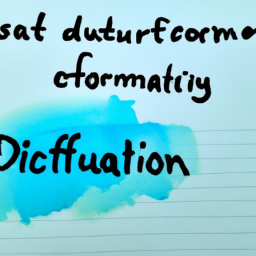 sat duturfcorma
cformatiy
Dicffuation